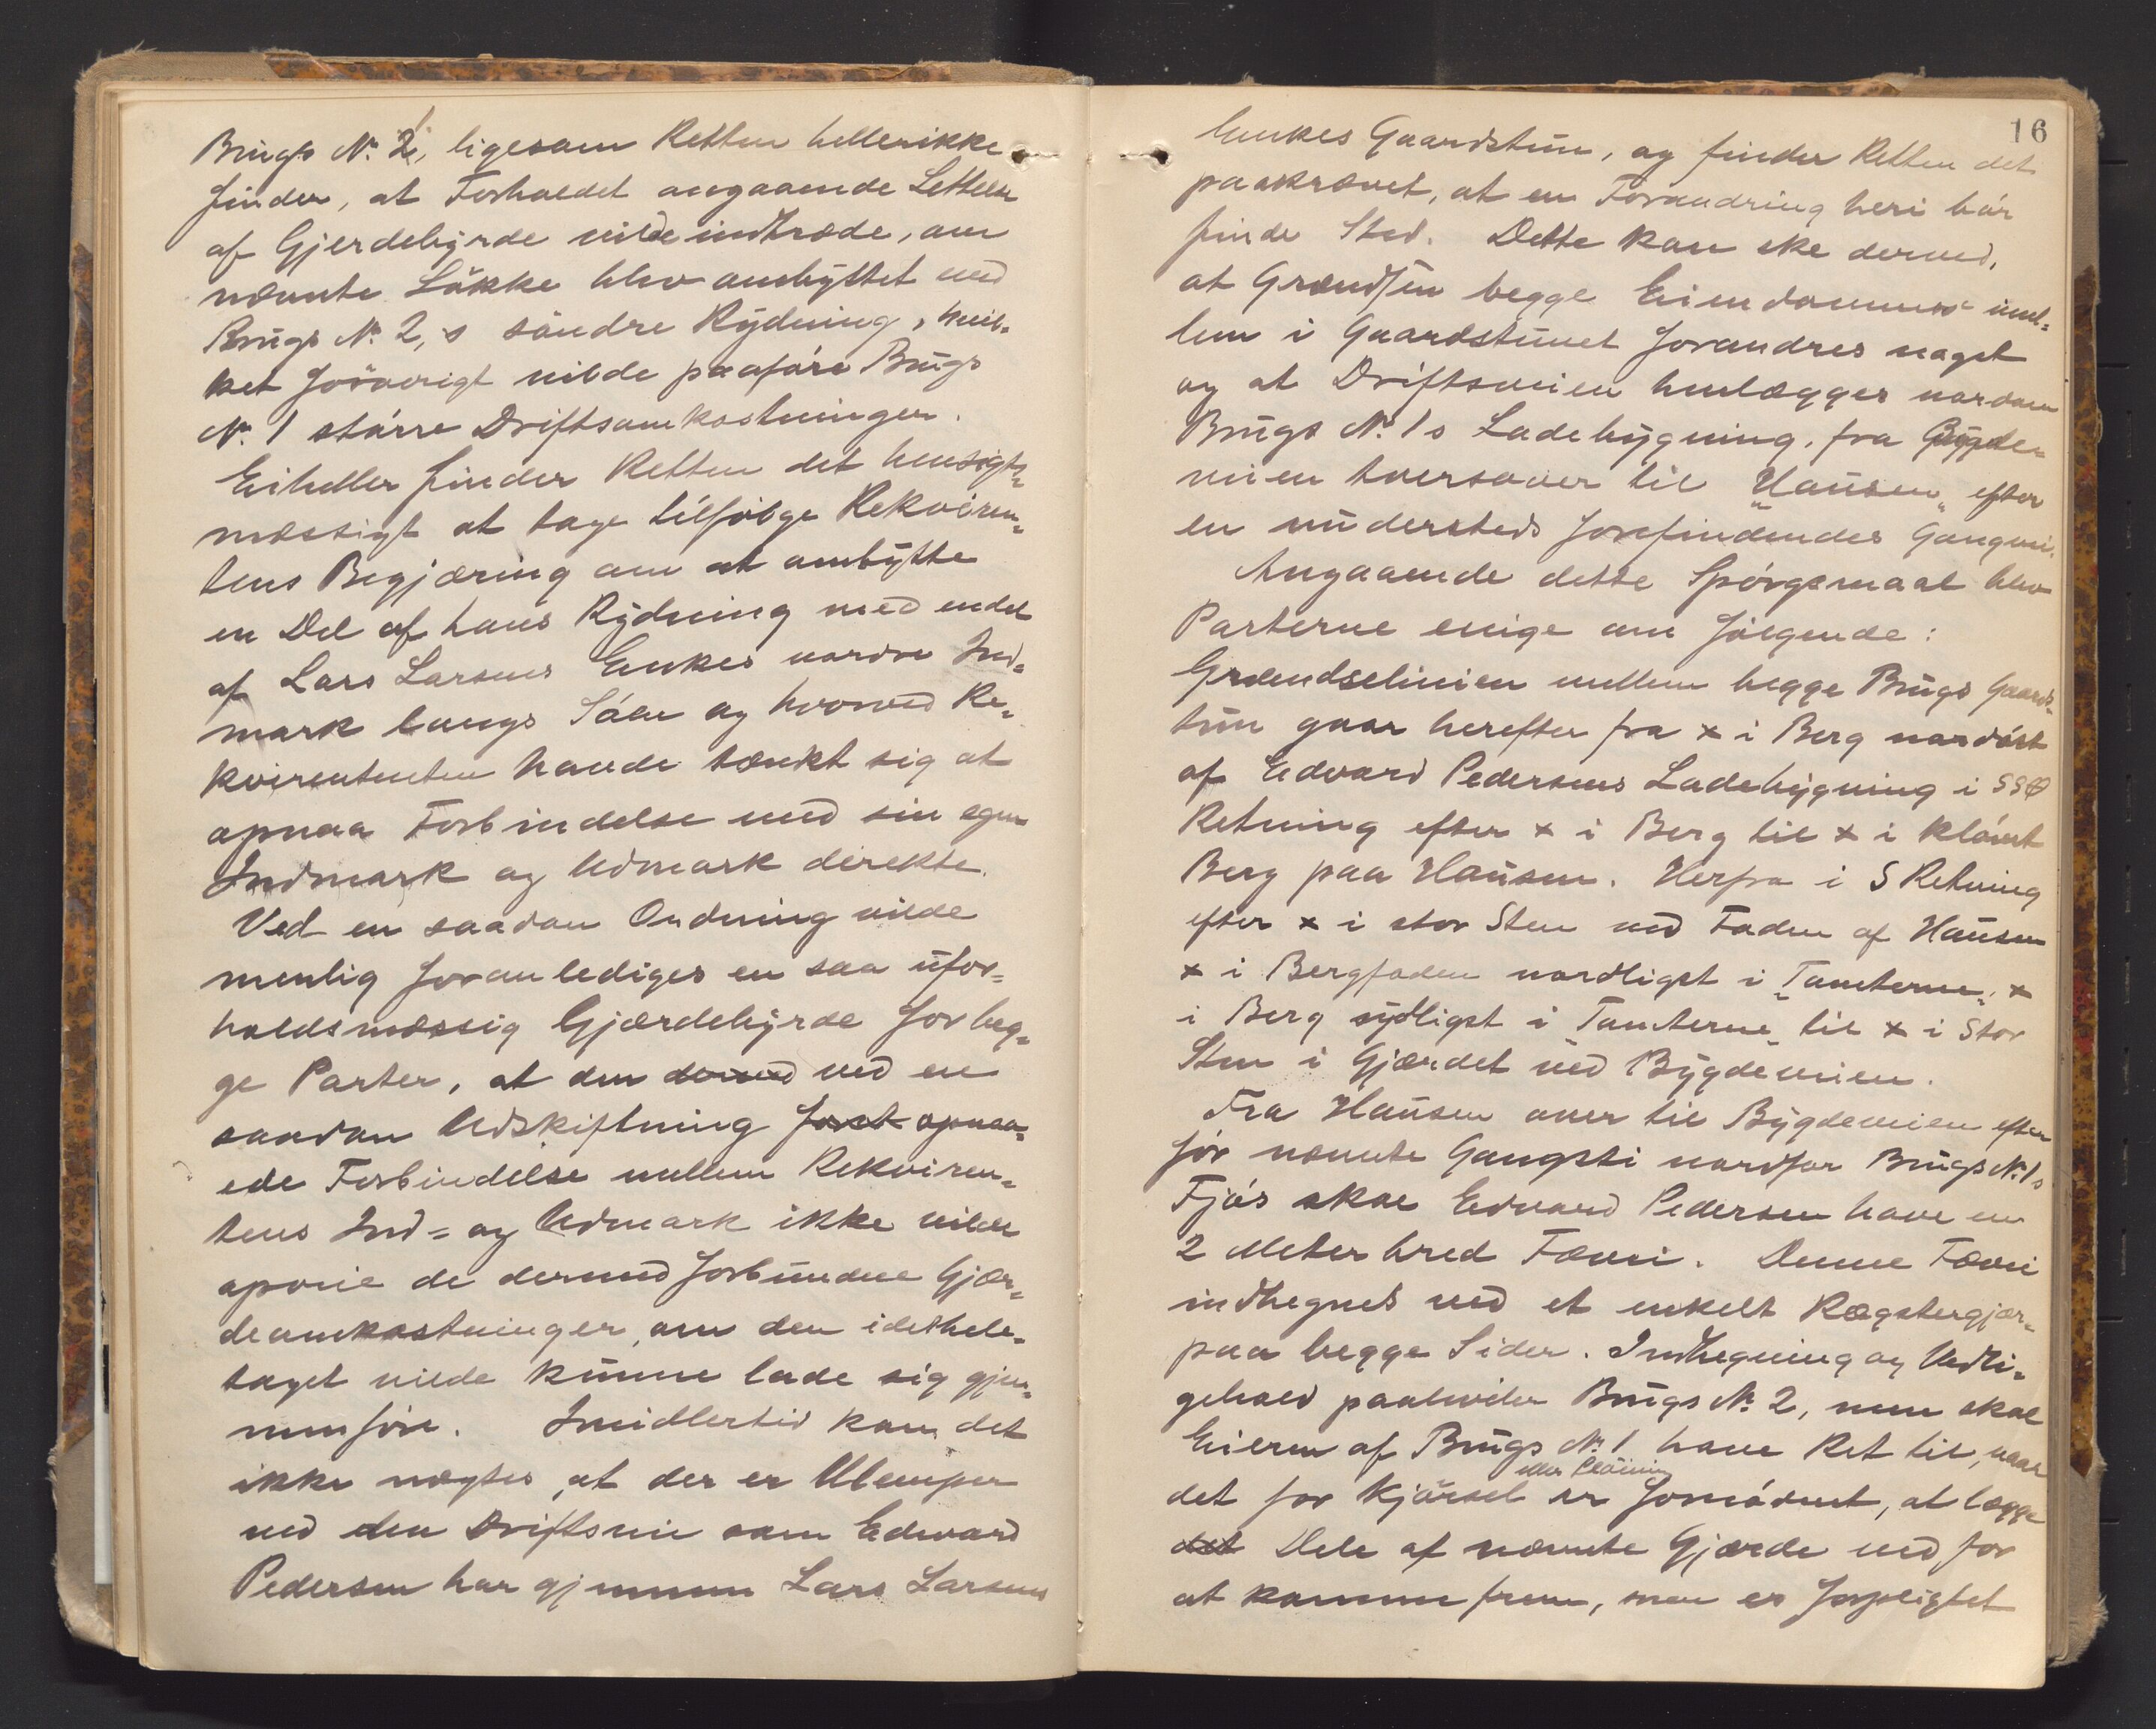 Brugs No. 2, ligesom Retten hellerikke
finder, at Forholdet angaaende Lettelse
af Gjerdebyrde vilde indtræde, om
nævnte Løkke blev ombyttet med
Brugs No. 2,s søndre Rydning, hvil-
ket forøvrigt vilde paaføre Brugs
No. 1 større Driftsomkostninger.
Eiheller finder Retten det hensigts-
mæssigt at tage tilfølge Rekviren-
tens Begjæring om at ombytte
en Del af hans Rydning med endel
af Lars Larsens Enkes nordre Ind-
mark langs Søen og hvorved Re-
kvirententen havde tænkt sig at
opnaa Forbindelse med sin egen
Indmark og Udmark direkte.
Ved en saadan Ordning vilde
nemlig foranlediges en saa ufor-
holdsmæssig Gjærdebyrde for beg-
ge Parter, at den derved ved en
saadan Udskiftning opnaa-
ede Forbindelse mellem Rekviren-
tens Ind- og Udmark ikke vilde
opveie de dermed forbundne Gjær-
deomkostninger, om den idethele-
taget vilde kunne lade sig gjen-
nemføre. Imidlertid kan det
ikke nægtes, at der er Ulemper
ved den Driftsvei som Edvard
Pedersen har gjennem Lars Larsens
16
Enkes Gaardstun, og finder Retten det
paakrævet, at en Forandring heri bør
finde Sted. Dette kan ske derved,
at Grændsen begge Eiendomme imel-
lem i Gaardstunet forandres noget
og at Driftsveien henlægges nordom
Brugs No. 1s Ladebygning, fra Bygde-
veien tversover til "Hausen" efter
en sammesteds forefindendes Gangvei.
Angaaende dette Spørgsmaal blev
Parterne enige om følgende:
Grændselinien mellem begge Brugs Gaards-
tun gaar herefter fra x i Berg nordøst
af Edvard Pedersens Ladebygning i SSØ
Retning efter x i Berg til x i kløvet
Berg paa Hausen. Herfra i S Retning
efter x i stor Sten ved Foden af Hausen
x i Bergfoden nordligst i "Tomterne", x
i Berg sydligst i Tomterne, til x i Stor
Sten i Gjærdet ved Bygdeveien.
Fra Hausen over til Bygdeveien efter
før nævnte Gangsti nordfor Brugs No. 1s
Fjøs skal Edvard Pedersen have en
2 Meter bred Fævei. Denne Fævei
indhegnes ved et enkelt Rægstergjær-
paa begge Sider. Indhegning og Vedli-
gehold paahviler Brugs No. 2, men skal
Eieren af Brugs No. 1 have Ret til, naar
eller Pløining
det for Kjørsel er fornødent, at lægge
det Dele af nævnte Gjærde ned for
at komme frem, men er forpligtet